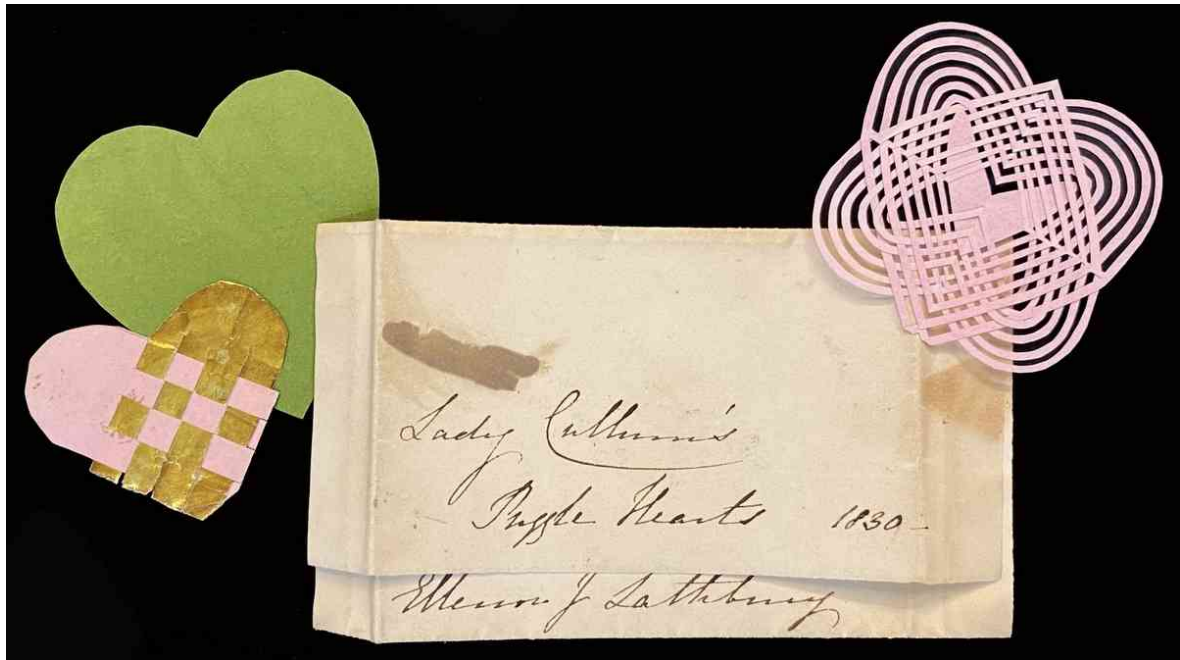 Lady Cullum's
Puzzle Hearts 1830-
J Lathbury